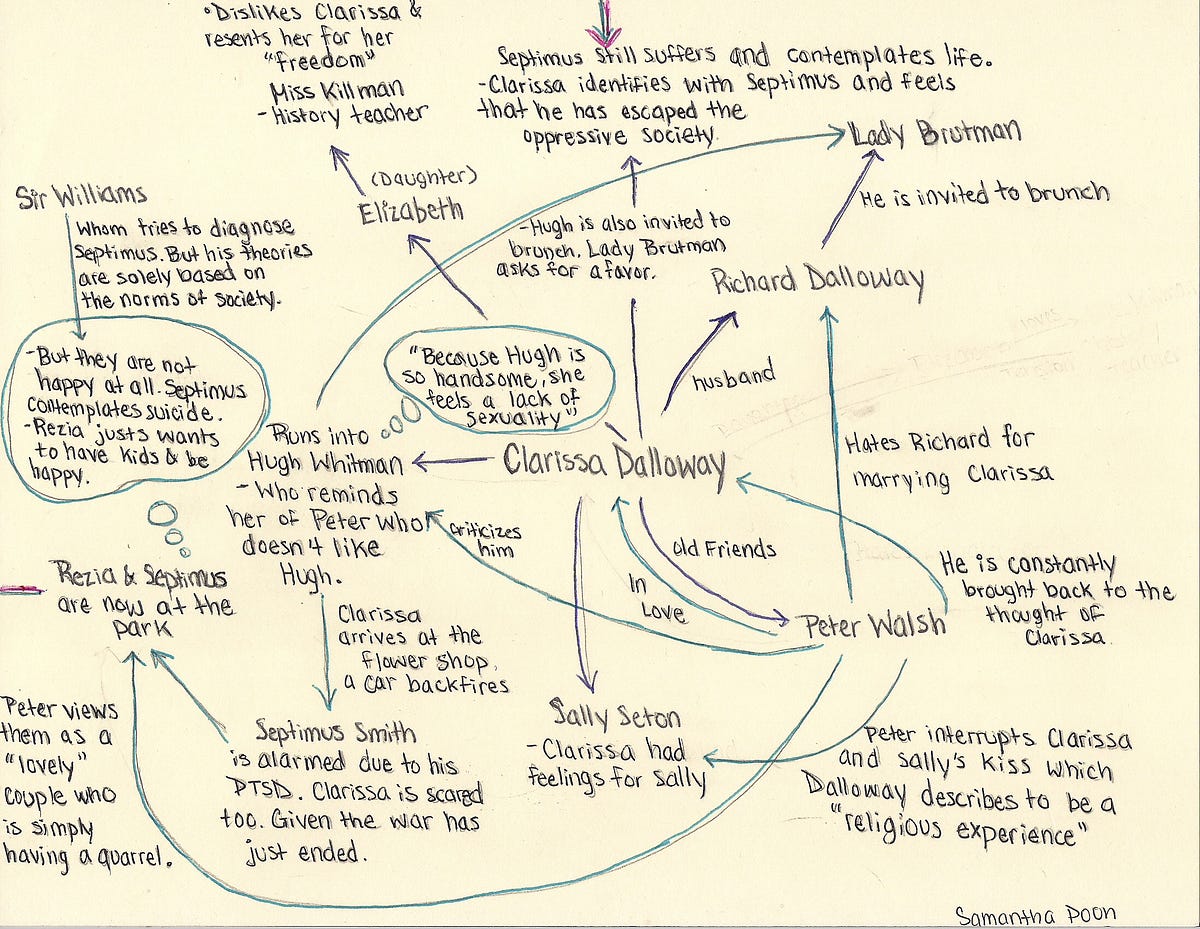 °Dislikes Clarissa &
resents her for her
"freedom"
Miss Killman
- History teacher
Septimus still suffers and contemplates life.
-Clarissa identifies with Septimus and feels
that he has escaped the
oppressive society.
Lady Brutman
He is invited to brunch
(Daughter)
Elizabeth
Sir Williams
Whom tries to diagnose
Septimus. But his theories
are solely based on
the norms of society.
-Hugh is also invited to
brunch. Lady Brutman
asks for a favor.
Richard Dalloway
-But they are not
happy at all. Septimus
contemplates suicide.
-Rezia justs wants
to have kids & be
happy.
"Because Hugh is
so handsome, she
feels a lack of
sexuality"
husband
Runs into
Hugh Whitman
- Who reminds
her of Peter who
doesn't like
Hugh.
Clarissa Dalloway
Hates Richard for
marrying Clarissa
criticizes
him
Old Friends
In
Love
He is constantly
brought back to the
thought of
Clarissa.
Peter Walsh
Rezia & Septimus
are now at the
park
Clarissa
arrives at the
flower shop,
a car backfires
Peter views
them as a
"lovely"
couple who
is simply
having a quarrel.
Septimus Smith
is alarmed due to his
PTSD. Clarissa is scared
too. Given the war has
just ended.
Sally Seton
- Clarissa had
feelings for Sally
Peter interrupts Clarissa
and Sally's kiss which
Dalloway describes to be a
"religious experience"
Samantha Poon